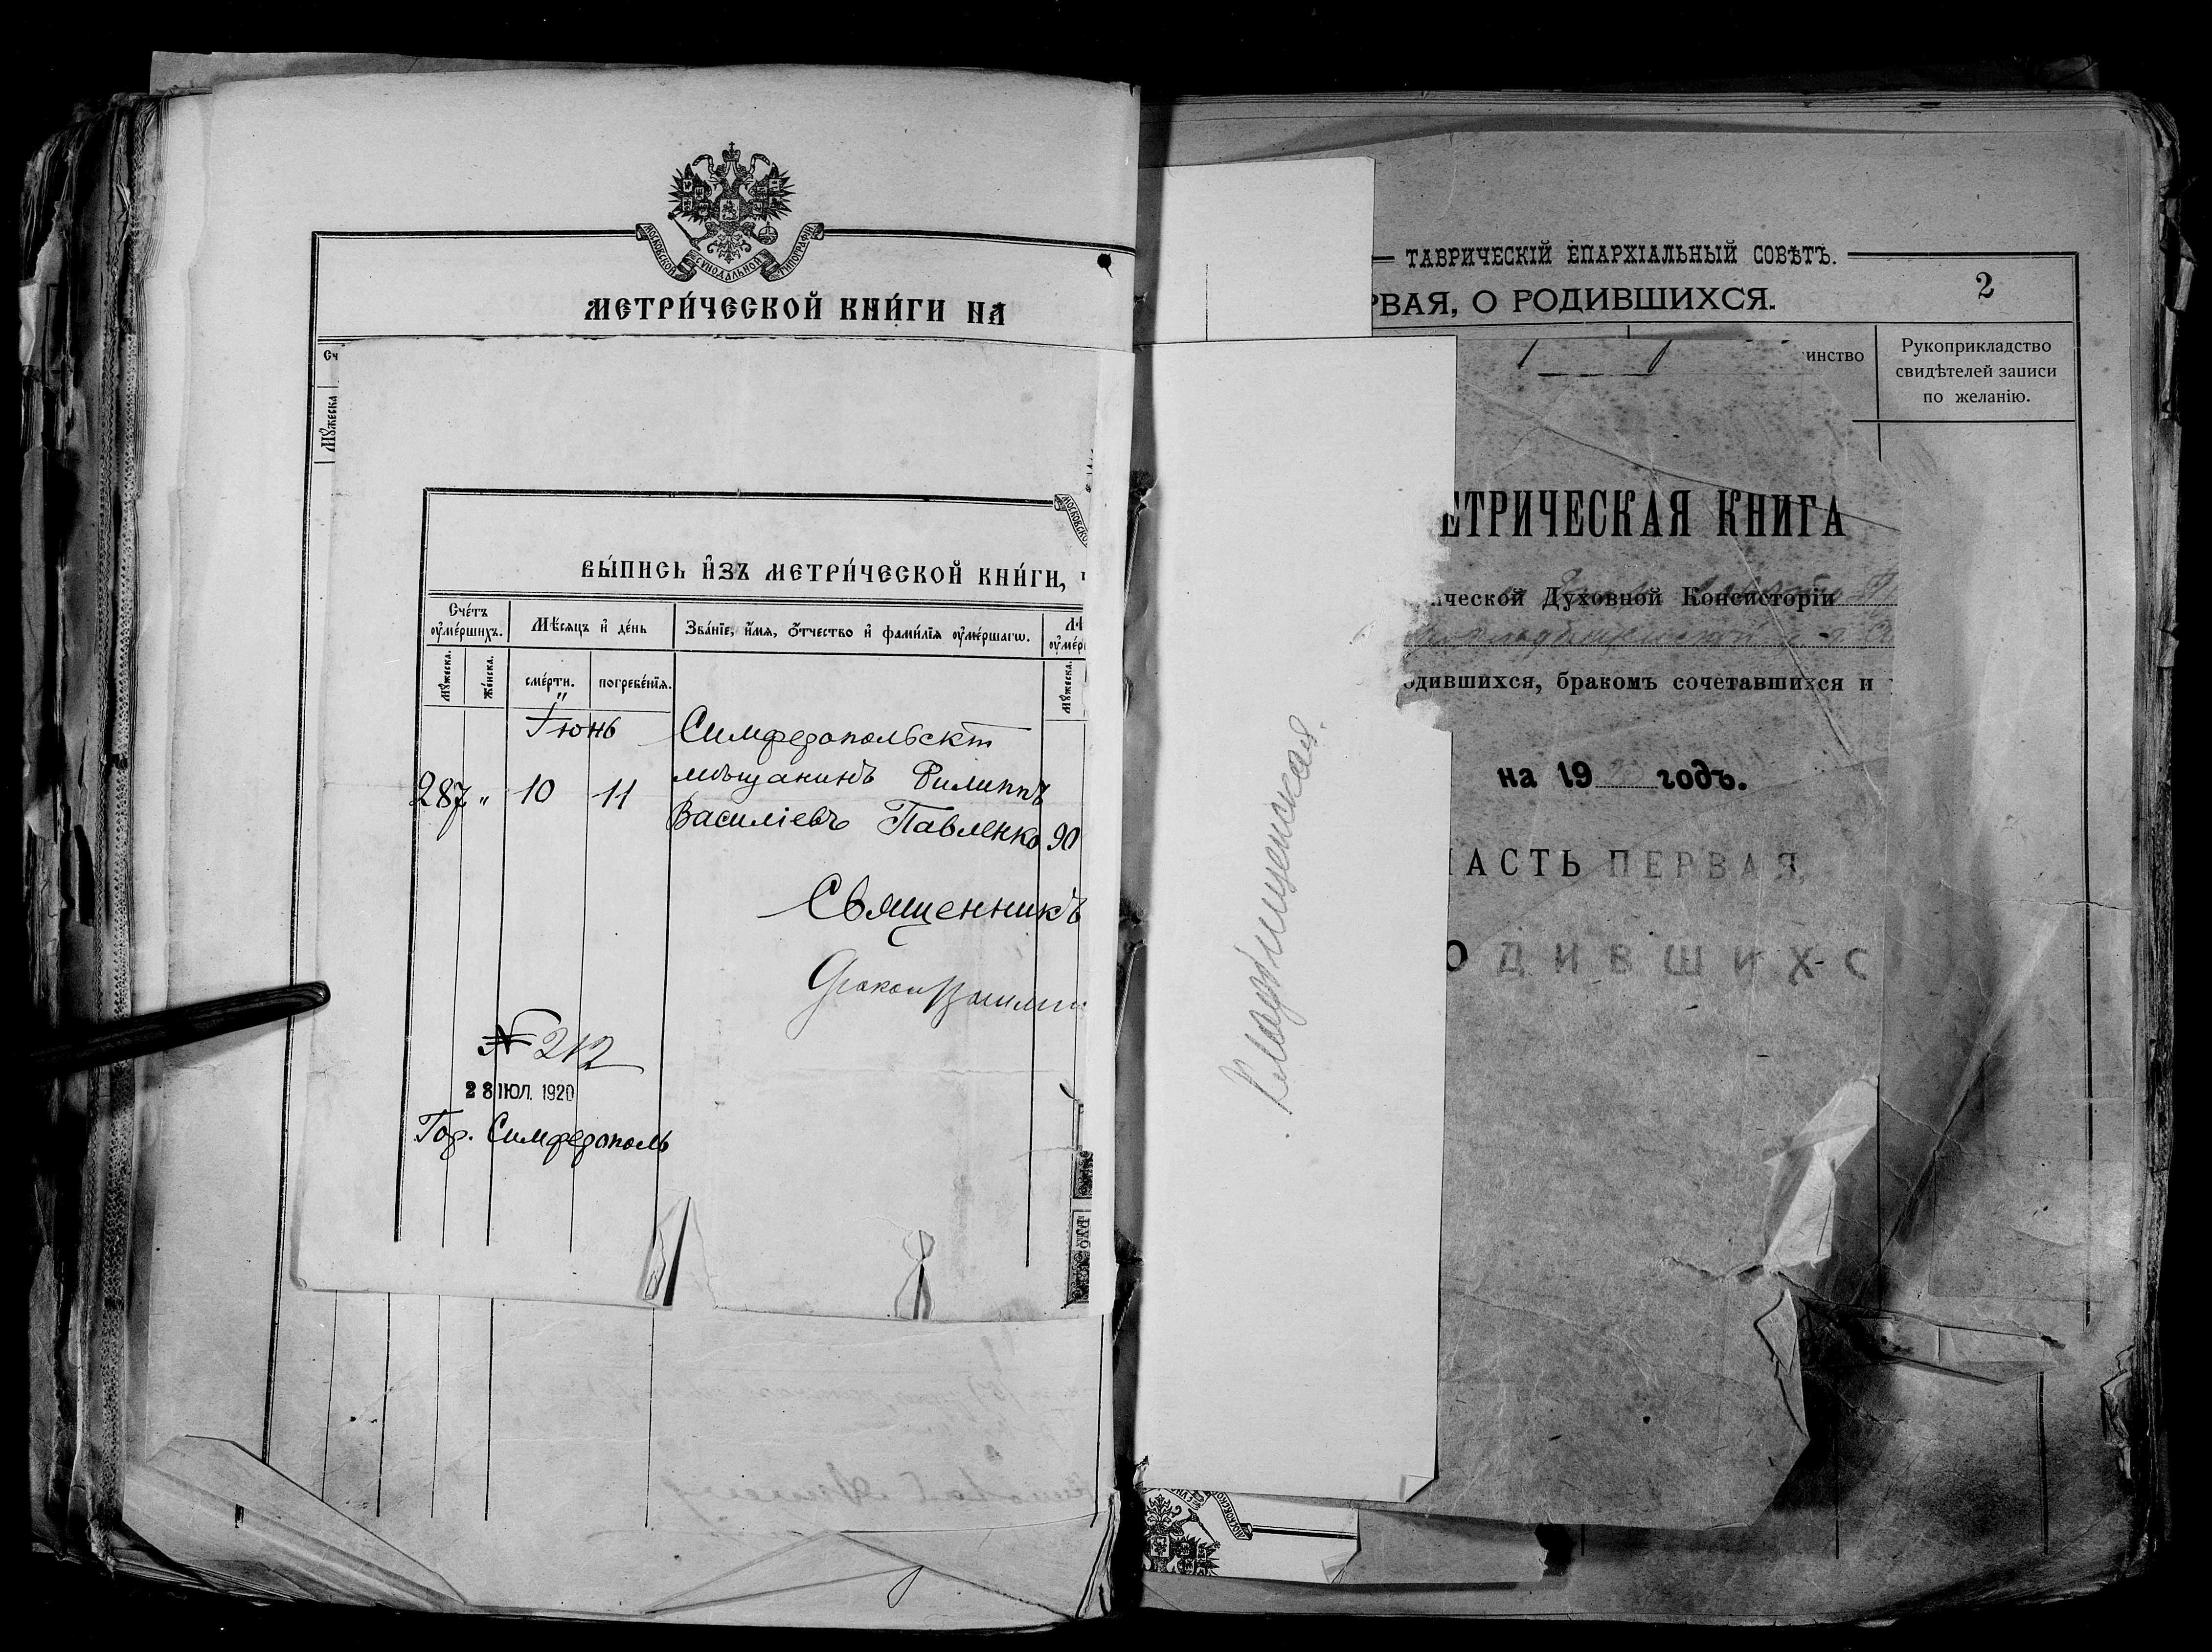 МОСКОВСКОЙ СѴНОДАЛЬНОЙ ТИПОГРАФІИ
МЕТРИ́ЧЕСКОЙ КНИ́ГИ НА
Сч
Мꙋ́жеска
МОСКОВСКО
ВЫ́ПИСЬ И҆ЗЪ МЕТРИ́ЧЕСКОЙ КНИ́ГИ, Ч
Сче́тъ ᲂу҆ме́ршихъ.
Мѣ́сяцъ и҆ де́нь
Зва́нїе, и҆́мя, ѻ҆́тчество и҆ фами́лїя ᲂу҆ме́ршагѡ.
Лѣ
ᲂу҆ме́р
Мꙋ́жеска.
Же́нска.
сме́рти.
погребе́нїя.
Мꙋ́жеска.
Іюнь
Симферопольскій
287 " 10 11 мѣщанинъ Филиппъ
Василіевъ Павленко 90
Священникъ
№ 212
28 ІЮЛ. 1920
Гор. Симферополь
ТАВРИЧЕСКІЙ ЕПАРХІАЛЬНЫЙ СОВѢТЪ.
РВАЯ, О РОДИВШИХСЯ.
2
инство
Рукоприкладство
свидѣтелей записи
по желанію.
ЕТРИЧЕСКАЯ КНИГА
ической Духовной Консисторіи
одившихся, бракомъ сочетавшихся и
на 19 годъ.
АСТЬ ПЕРВАЯ,
ОДИВШИХС
Кладбищенская.
МОСКОВСКО